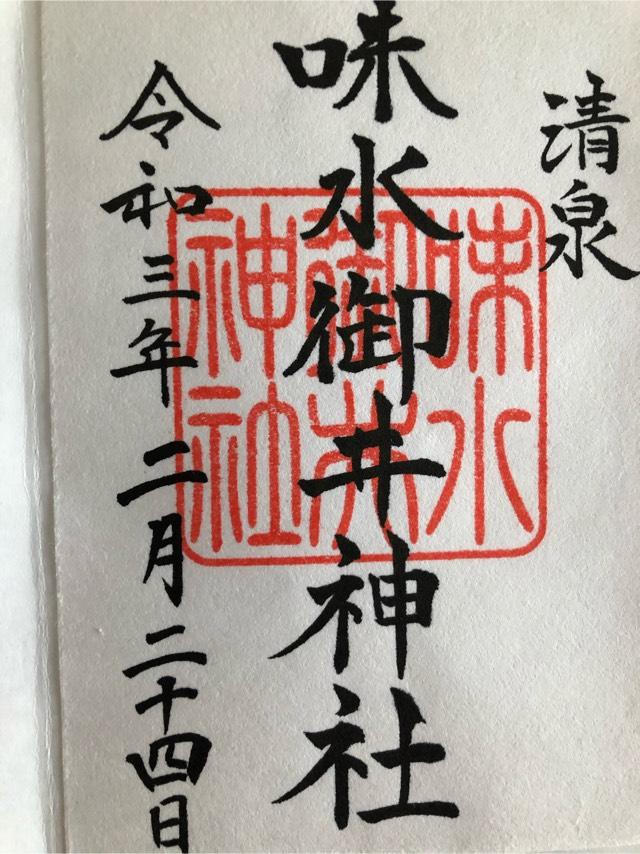 清泉
味水御井神社
令和三年二月二十四日
味水
御井
神社